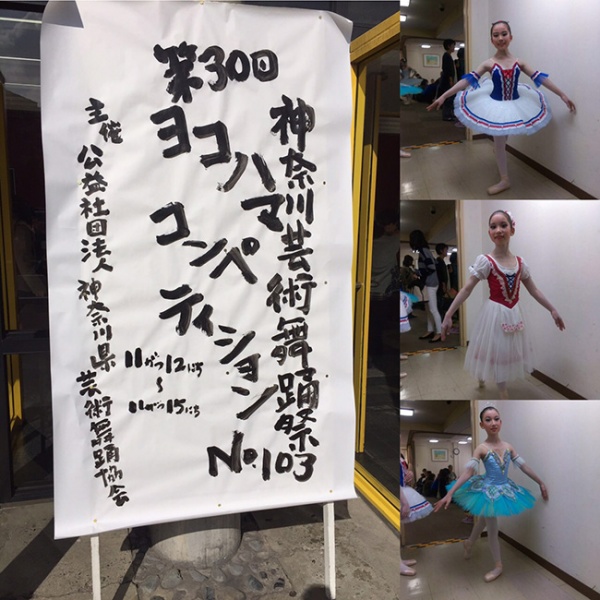 神奈川芸術舞踊祭 No.103
第30回
ヨコハマ
コンペティション
11がつ12にち
〜
11がつ15にち
主催 公益社団法人 神奈川県芸術舞踊協会